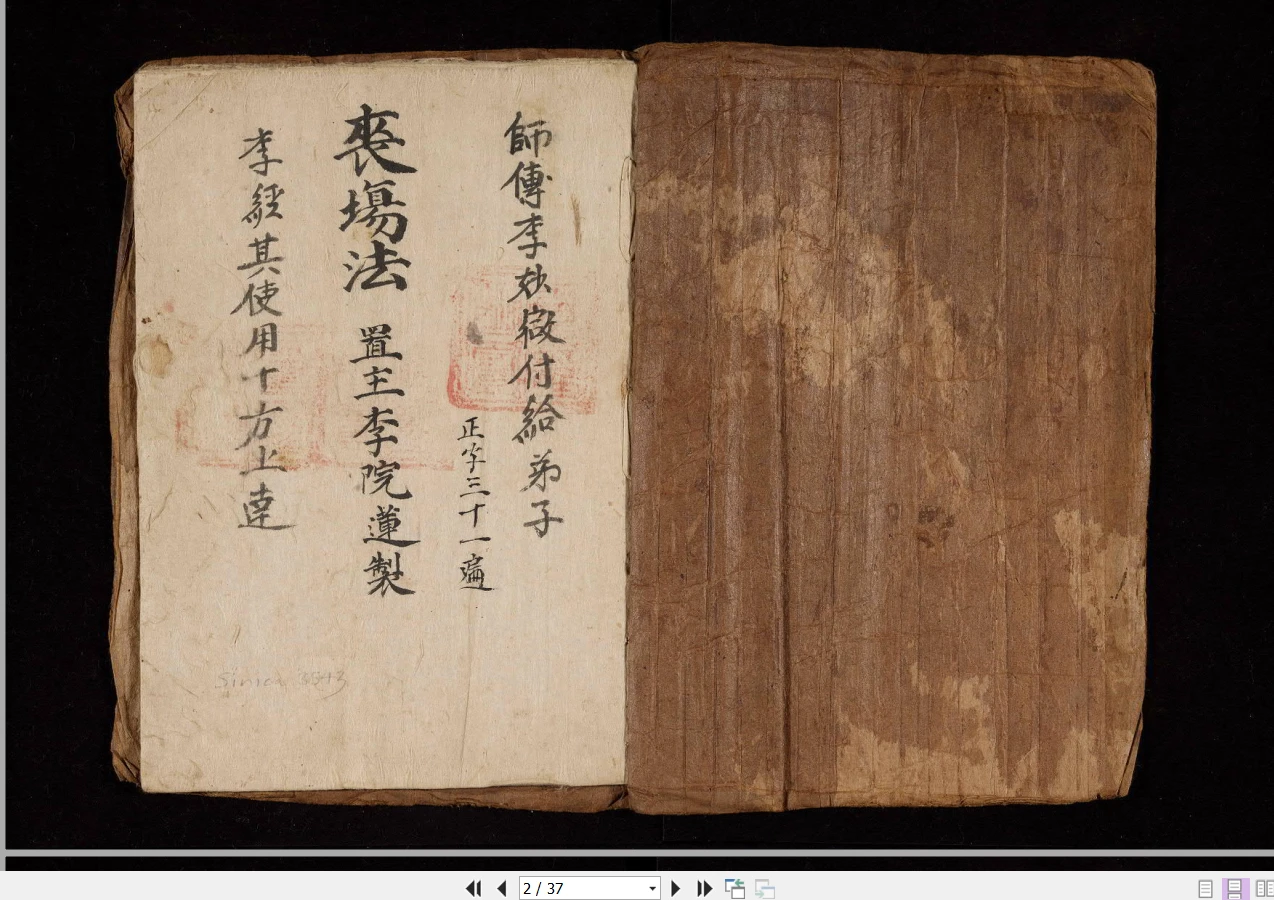 師傳李妙㣲付給弟子
正字三十一遍
喪場法 置主李院蓮製
李經其使用十方上達
Sinica 3543
2 / 37